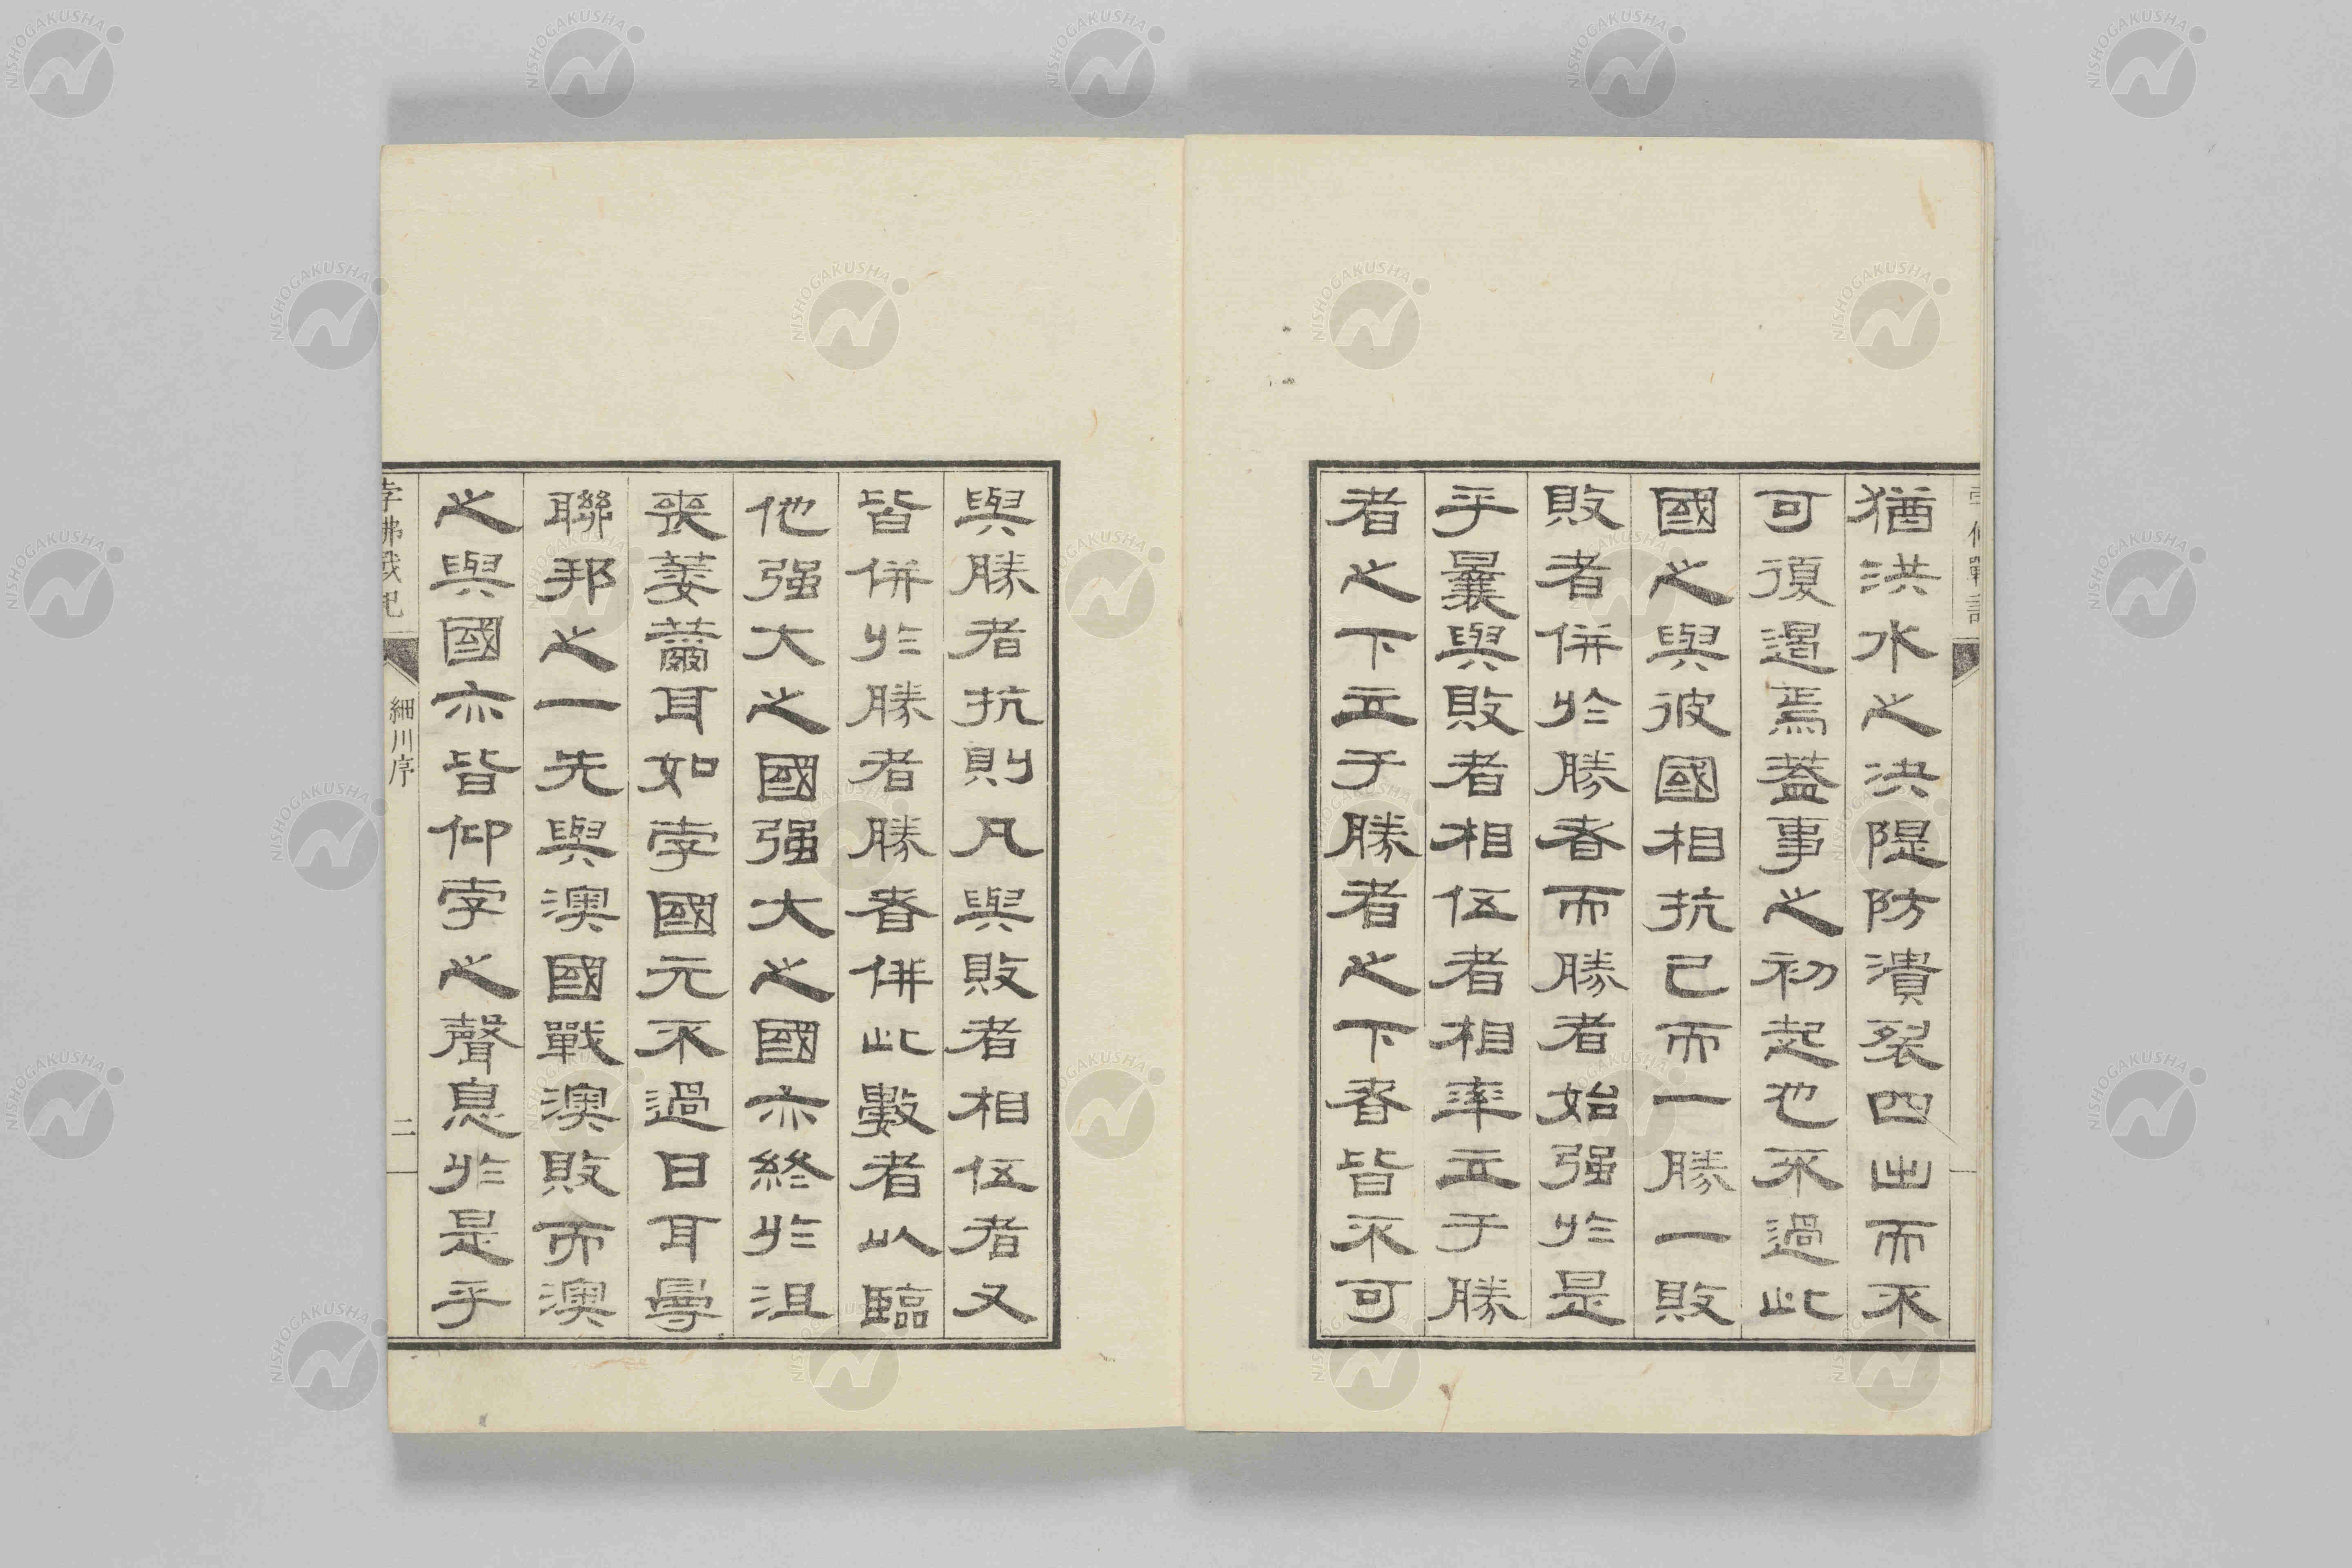 孛佛戰記
猶洪水之決隄防潰裂四出而不
可復遏焉蓋事之初起也不過此
國之與彼國相抗已而一勝一敗
敗者併於勝者而勝者始强於是
乎曩與敗者相伍者相率立于勝
者之下立于勝者之下者皆不可
與勝者抗則凡與敗者相伍者又
皆併於勝者勝者併此數者以臨
他强大之國强大之國亦終於沮
喪萎薾耳如孛國元不過日耳曼
聯邦之一先與澳國戰澳敗而澳
之與國亦皆仰孛之聲息於是乎
孛佛戰記 細川序 二
NISHOGAKUSHA